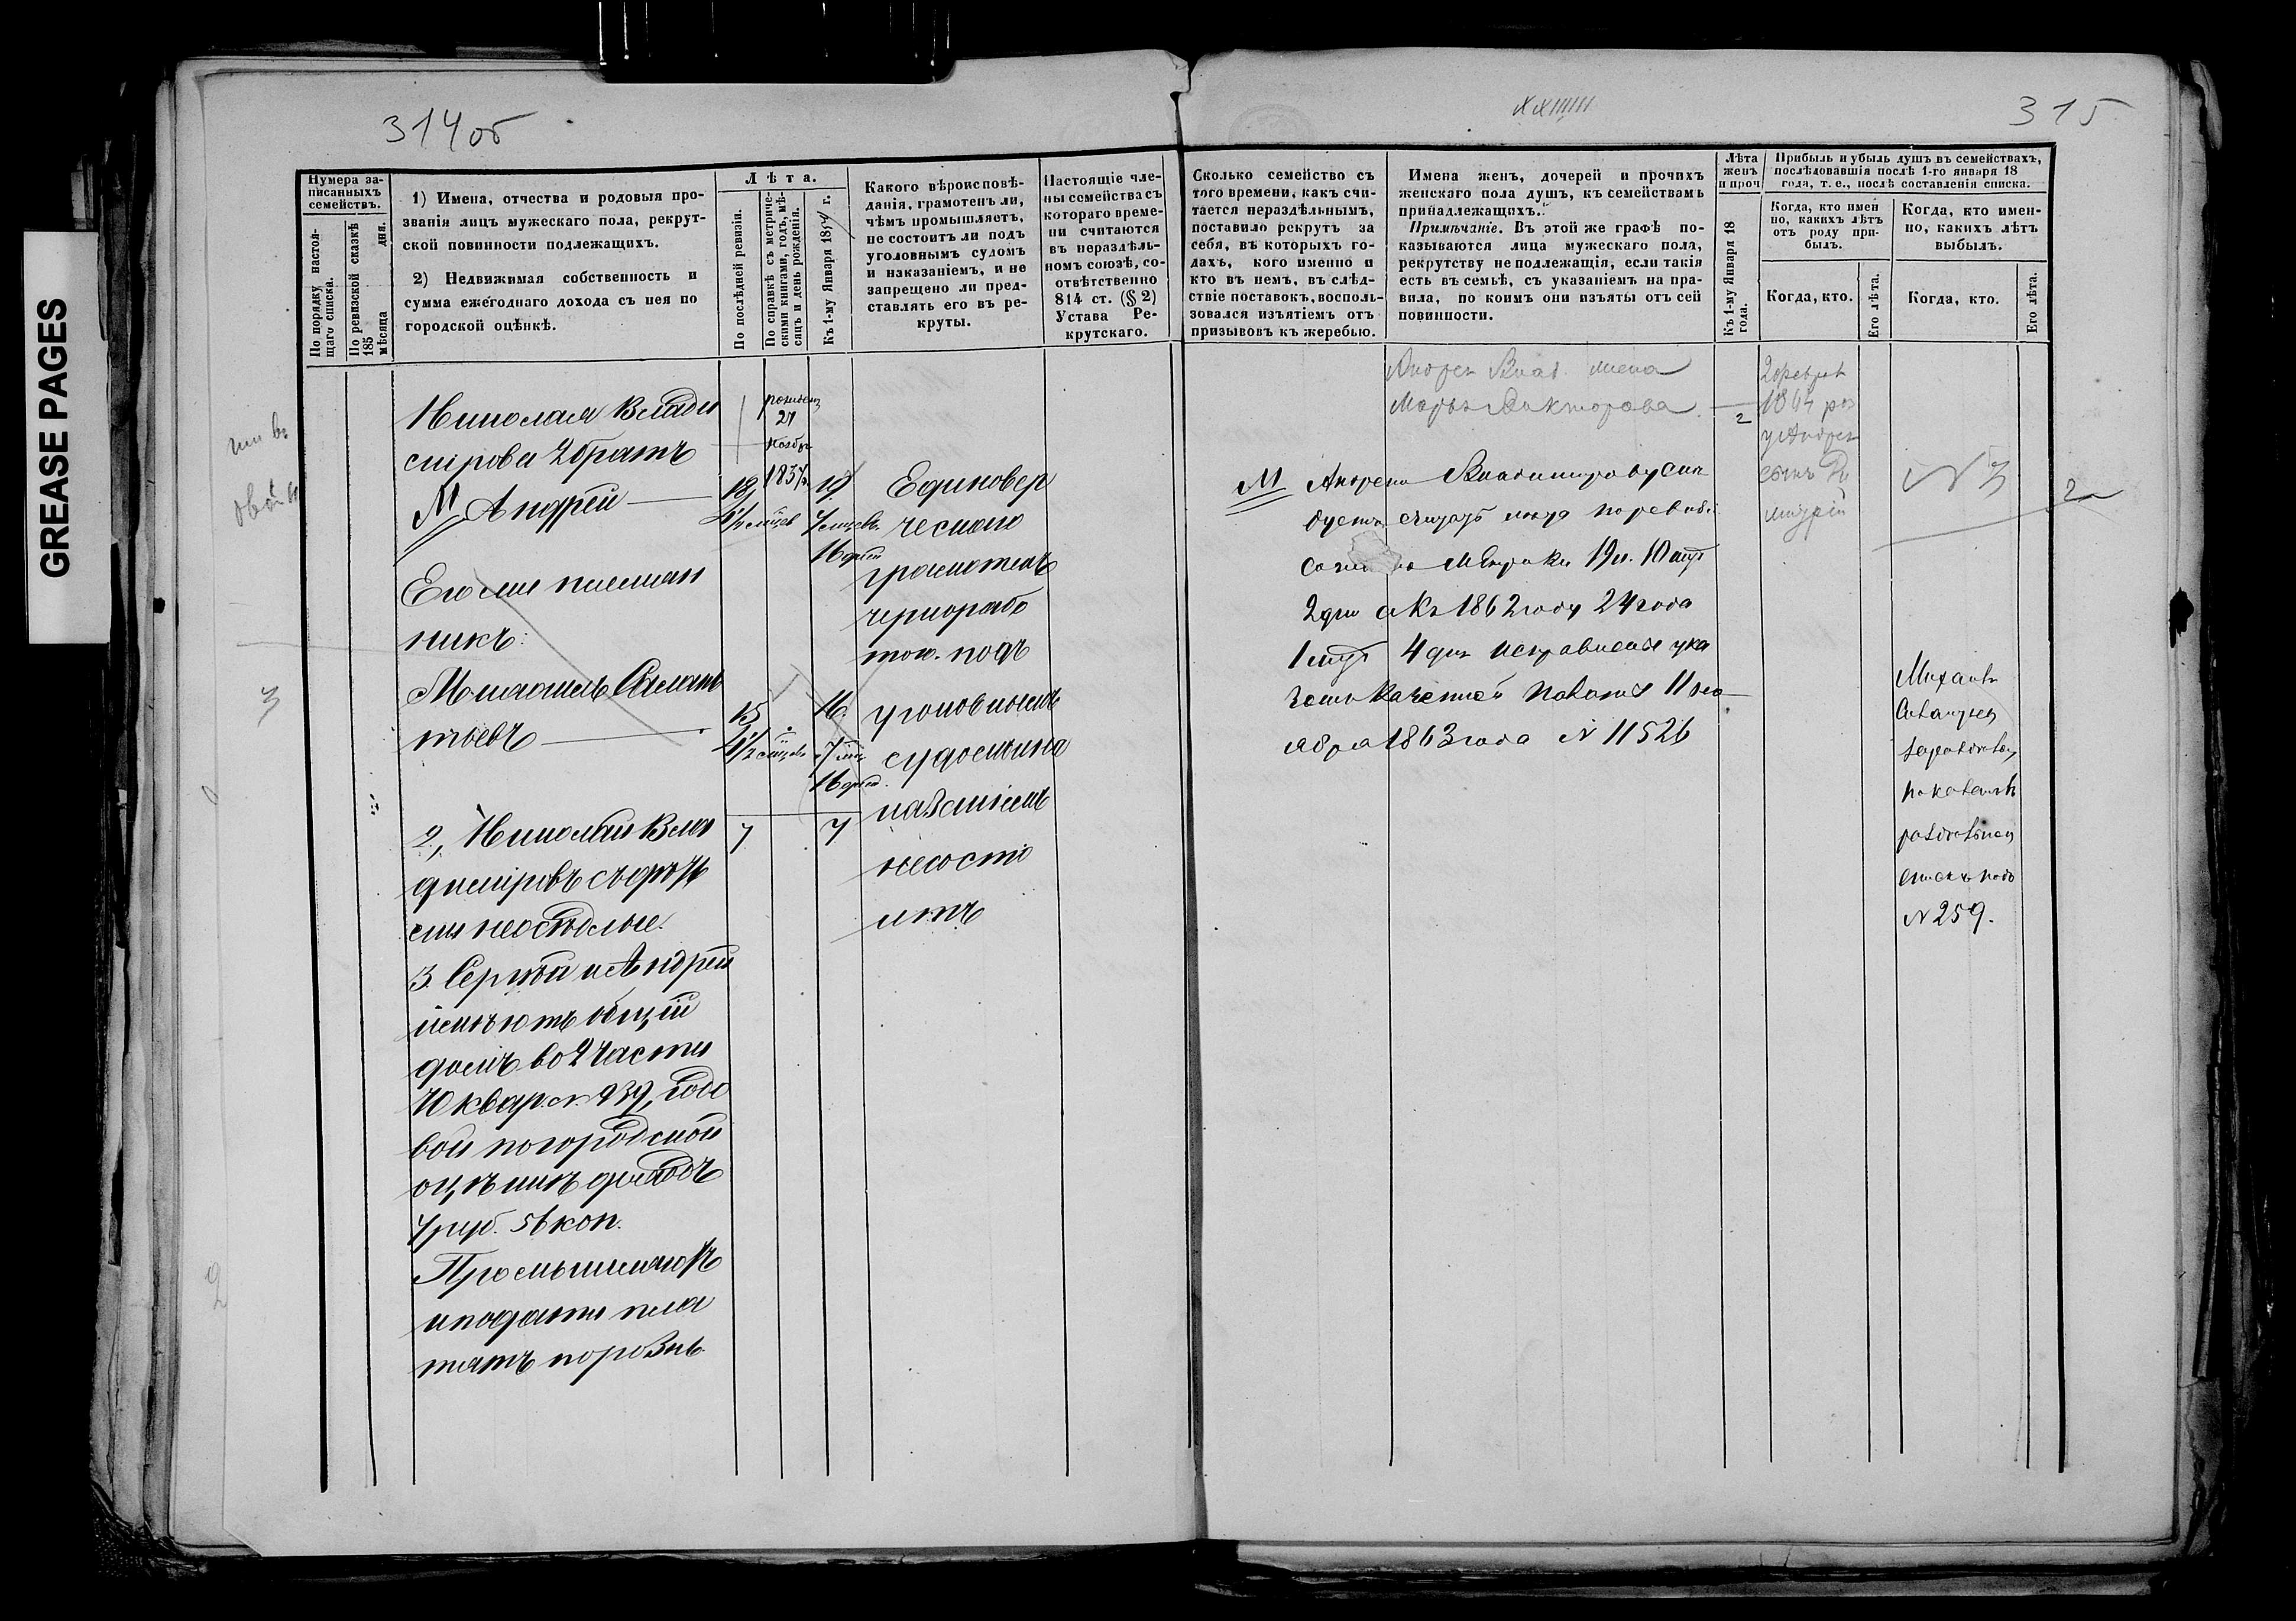 GREASE PAGES
314 об
Нумера за-
писанныхъ
семействъ.
По порядку настоя-
щаго списка.
По ревизской сказкѣ
185 дня.
мѣсяца
1) Имена, отчества и родовыя про-
званія лицъ мужескаго пола, рекрут-
ской повинности подлежащихъ.
2) Недвижимая собственность и
сумма ежегоднаго дохода съ нея по
городской оцѣнкѣ.
Лѣта.
По послѣдней ревизіи.
По справкѣ съ метриче-
скими книгами, годъ, мѣ-
сяцъ и день рожденія.
Къ 1-му Января 18 г.
Какого вѣроисповѣ-
данія, грамотенъ ли,
чѣмъ промышляетъ,
не состоитъ ли подъ
уголовнымъ судомъ
и наказаніемъ, и не
запрещено ли пред-
ставлять его въ ре-
круты.
Настоящіе чле-
ны семейства съ
котораго време-
ни считаются
въ нераздѣль-
номъ союзѣ, со-
отвѣтственно
814 ст. (§ 2)
Устава Ре-
крутскаго.
Николая Влади
мірова 2 братъ
М Андрей
18
4½ мѣсяцев
27
Ноября
1837
19
7 мѣсяцев
16 дней
Его же племян
никъ:
15
4½ мѣсяцев
16
7 мѣс
16 дней
2, Николай Вла
диміровъ съ дѣть
ми неотдѣльные.
7
7
3. Сергѣй и Андрей
имѣютъ общій
домъ во 2 части
10 квар. № 239, годо
вой по городской
оцѣнкѣ доходъ
7 руб. 56 коп.
Промышляютъ
и подати пла
тятъ порознь
Единовер
ческаго
грамотенъ
черноработ
под
уголовнымъ
судомъ и на
казаніемъ
несосто
итъ
3
315
Сколько семейство съ
того времени, какъ счи-
тается нераздѣльнымъ,
поставило рекрутъ за
себя, въ которыхъ го-
дахъ, кого именно и
кто въ немъ, въ слѣд-
ствіе поставокъ, восполь-
зовался изъятіемъ отъ
призывовъ къ жеребью.
Имена женъ, дочерей и прочихъ
женскаго пола душъ, къ семействамъ
принадлежащихъ.
Примѣчаніе. Въ этой же графѣ по-
казываются лица мужескаго пола,
рекрутству неподлежащія, если такія
есть въ семьѣ, съ указаніемъ на пра-
вила, по коимъ они изъяты отъ сей
повинности.
Лѣта
женъ
и проч
Къ 1-му Января 18
года.
Прибыль и убыль душъ въ семействахъ,
послѣдовавшія послѣ 1-го января 18
года, т. е., послѣ составленія списка.
Когда, кто имен
но, какихъ лѣтъ
отъ роду при-
былъ.
Когда, кто имен-
но, какихъ лѣтъ
выбылъ.
Когда, кто.
Его лѣта.
Когда, кто.
Его лѣта.
Андрея Влад. жена
Марья Викторова
2
1864 ро
у Андрея
сынъ Ди
митрій
№ 3
М Андрею Владимирову
считать по ревизіи
метрики 19 л. 10 мѣс
2 дня а къ 1862 году 24 года
1 мѣс 4 дня исправлены ука
зомъ Казенной Палаты 11 но
ября 1863 года № 11526
Михаилъ
показанъ
списк подъ
№ 259.